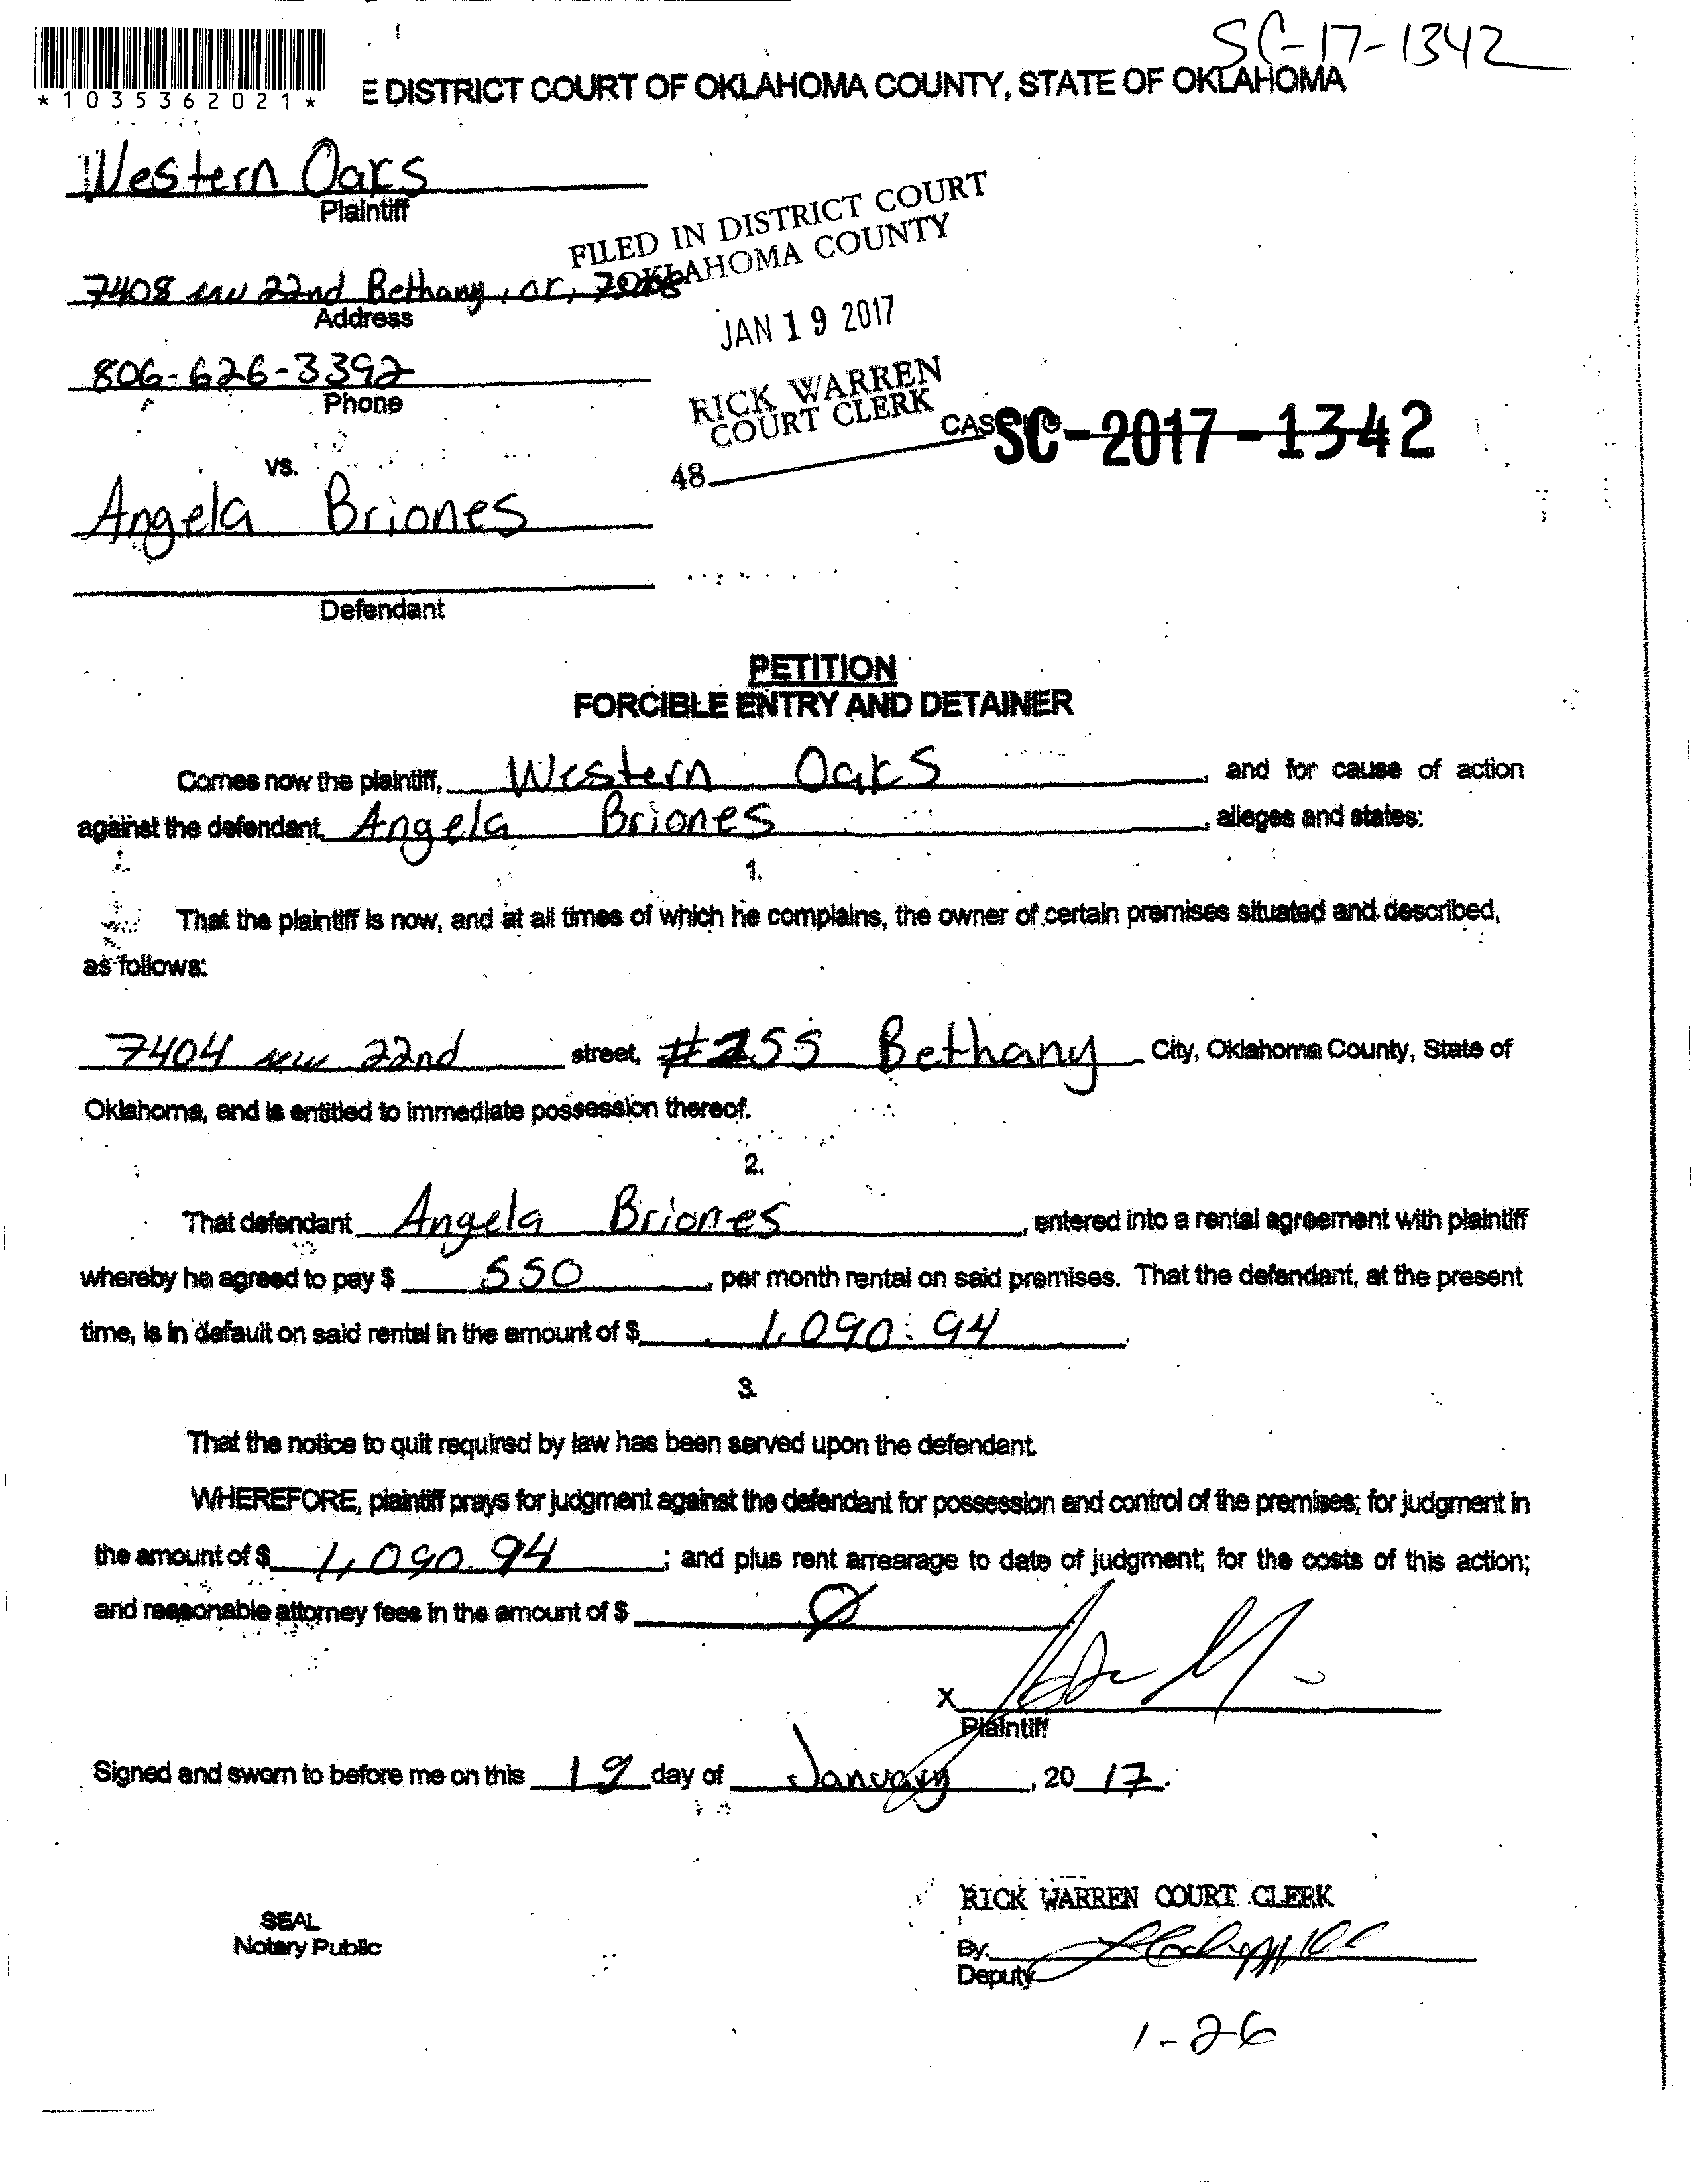 SC-17-1342
*1035362021*
E DISTRICT COURT OF OKLAHOMA COUNTY, STATE OF OKLAHOMA
Western Oaks
Plaintiff
FILED IN DISTRICT COURT
OKLAHOMA COUNTY
7408 NW 22nd Bethany, OK,
Address
JAN 19 2017
806-626-3392
Phone
RICK WARREN
COURT CLERK
CAS SC-2017-1342
48
vs.
Angela Briones
Defendant
PETITION
FORCIBLE ENTRY AND DETAINER
Comes now the plaintiff, Western Oaks, and for cause of action
against the defendant, Angela Briones, alleges and states:
1.
That the plaintiff is now, and at all times of which he complains, the owner of certain premises situated and described,
as follows:
7404 NW 22nd street, #255 Bethany City, Oklahoma County, State of
Oklahoma, and is entitled to immediate possession thereof.
2.
That defendant Angela Briones, entered into a rental agreement with plaintiff
whereby he agreed to pay $ 550, per month rental on said premises. That the defendant, at the present
time, is in default on said rental in the amount of $ 1,090.94.
3.
That the notice to quit required by law has been served upon the defendant.
WHEREFORE, plaintiff prays for judgment against the defendant for possession and control of the premises; for judgment in
the amount of $ 1,090.94; and plus rent arrearage to date of judgment; for the costs of this action;
and reasonable attorney fees in the amount of $ Ø
X
Plaintiff
Signed and sworn to before me on this 19 day of January, 2017.
RICK WARREN COURT CLERK
SEAL
Notary Public
By:
Deputy
1-26